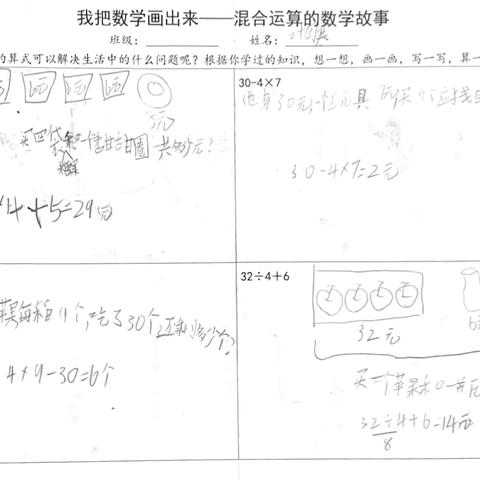 我把数学画出来——混合运算的数学故事
班级： 姓名：
的算式可以解决生活中的什么问题呢？根据你学过的知识，想一想，画一画，写一写，算一
6元 6元 6元
5元
买四袋 和一个甜甜圈 共 多少元？
4+5=29元
30-4×7
他有30元，一个玩具 元，买4个 应找
30-4×7=2元
苹果每箱9个，吃了30个，还剩多少个？
4×9-30=6个
32÷4+6
32元
6元
买一个苹果和一
32÷4+6=14元
8